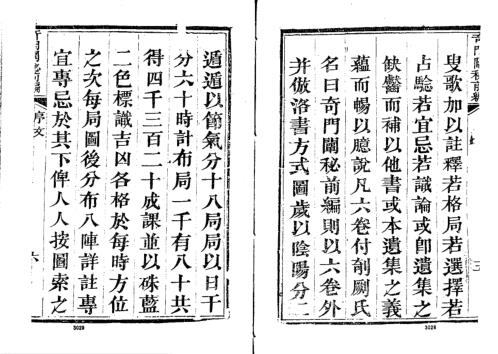 叟歌加以註釋若格局若選擇若
占驗若宜忌若識論或卽遺集之
缺齾而補以他書或本遺集之義
蘊而暢以臆說凡六卷付剞劂氏
名曰奇門闡秘前編則以六卷外
并倣洛書方式圖歲以陰陽分二
遁遁以節氣分十八局局以日干
分六十時計布局一千有八十共
得四千三百二十成課並以硃藍
二色標識吉凶各格於每時方位
之次每局圖後分布八陣詳註專
宜專忌於其下俾人人按圖索之
序文
六
3028
3029